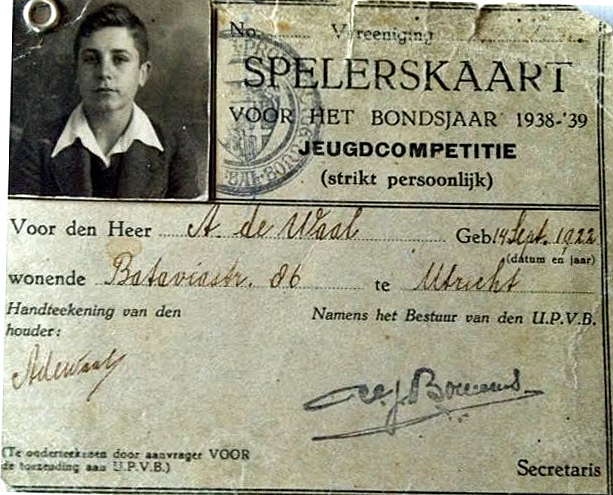 No. Vereeniging
SPELERSKAART
VOOR HET BONDSJAAR 1938-'39
JEUGDCOMPETITIE
(strikt persoonlijk)
Voor den Heer A. de Waal Geb. 14 Sept. 1922
(datum en jaar)
wonende Bataviastr. 86 te Utrecht
Handteekening van den
houder:
Namens het Bestuur van den U.P.V.B.
AdeWaal
(Te onderteekenen door aanvrager VOOR
de toezending aan U.P.V.B.)
Secretaris